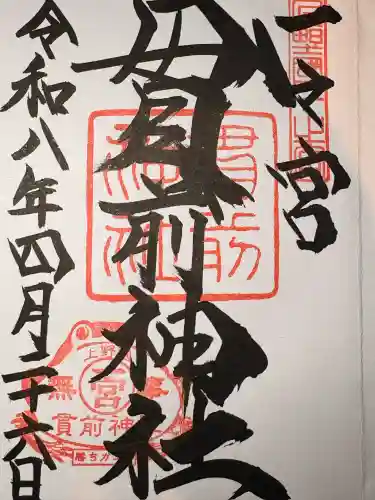 一之宮
貫前神社
令和八年四月二十六日
貫前神社
上野
一宮
無事
貫前神社
勝ちガエル